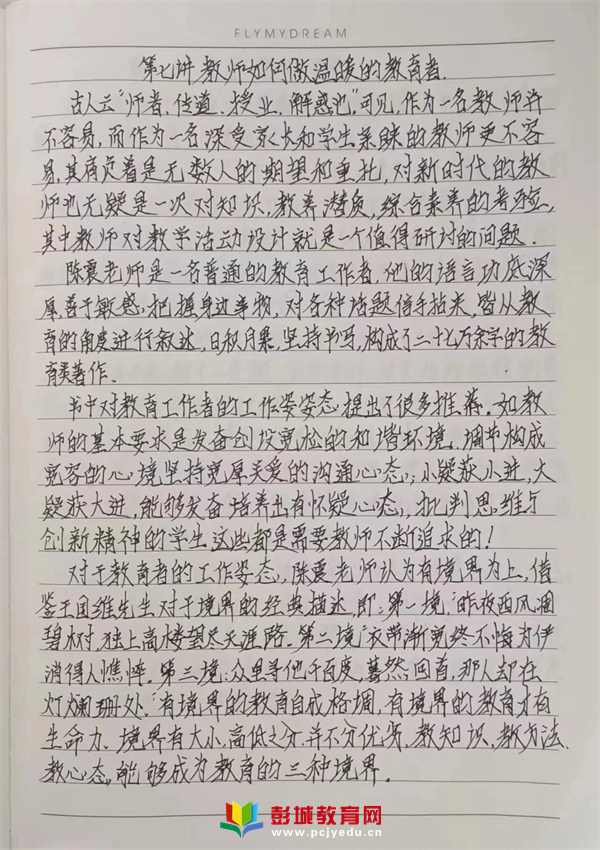 FLYMYDREAM
第七讲 教师如何做温暖的教育者.
古人云“师者,传道.授业.解惑也.”可见,作为一名教师并
不容易,而作为一名深受家长和学生亲睐的教师更不容
易,其肩负着是无数人的期望和重托,对新时代的教
师也无疑是一次对知识,教养潜质,综合素养的考验,
其中教师对教学活动设计就是一个值得研讨的问题.
陈震老师是一名普通的教育工作者,他的语言功底深
厚,善于敏感,把握身边事物,对各种话题信手拈来,皆从教
育的角度进行叙述,日积月累,坚持书写,构成了二十七万余字的教
育类著作.
书中对教育工作者的工作姿态,提出了很多推荐.如教
师的基本要求是发奋创设宽松的和谐环境,调节构成
宽容的心境坚持宽厚关爱的沟通心态;小疑获小进,大
疑获大进,能够发奋培养出有怀疑心态,批判思维与
创新精神的学生这些都是需要教师不断追求的!
对于教育者的工作姿态,陈震老师认为有境界为上,借
鉴王国维先生对于境界的经典描述,即:第一境,“昨夜西风凋
碧树.独上高楼望尽天涯路.第二境“衣带渐宽终不悔为伊
消得人憔悴.第三境:众里寻他千百度,蓦然回首,那人却在
灯火阑珊处.”有境界的教育自成格调,有境界的教育才有
生命力.境界有大小,高低之分,并不分优劣,教知识,教方法,
教心态,能够成为教育的三种境界.
彭城教育网
www.pcjyedu.cn